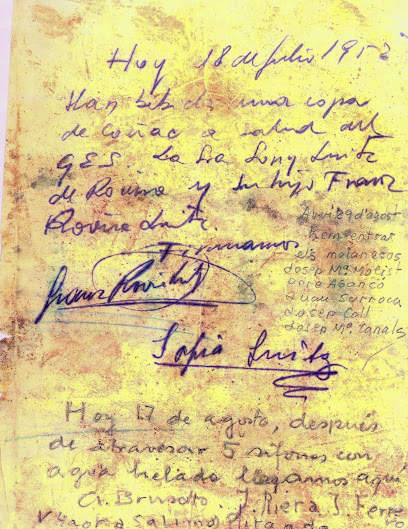 Hoy 18 de Julio 1952
Han bebido una copa
de Coñac a salud del
G.E.S. La Sra Sony Suitz
de Rovira y su hijo Franz
Rovira Suitz.
Firmamos
Franz Rovira
Sofia Suitz
Avui 29 d'agost
hem entrat
els mataresos
Josep Mª Molist
Pere Abancó
Juan Surroca
Josep Coll
Josep Mª Canals
Hoy 17 de agosto, después
de atravesar 5 sifones con
agua helada llegamos aquí
J. Riera J. Ferre